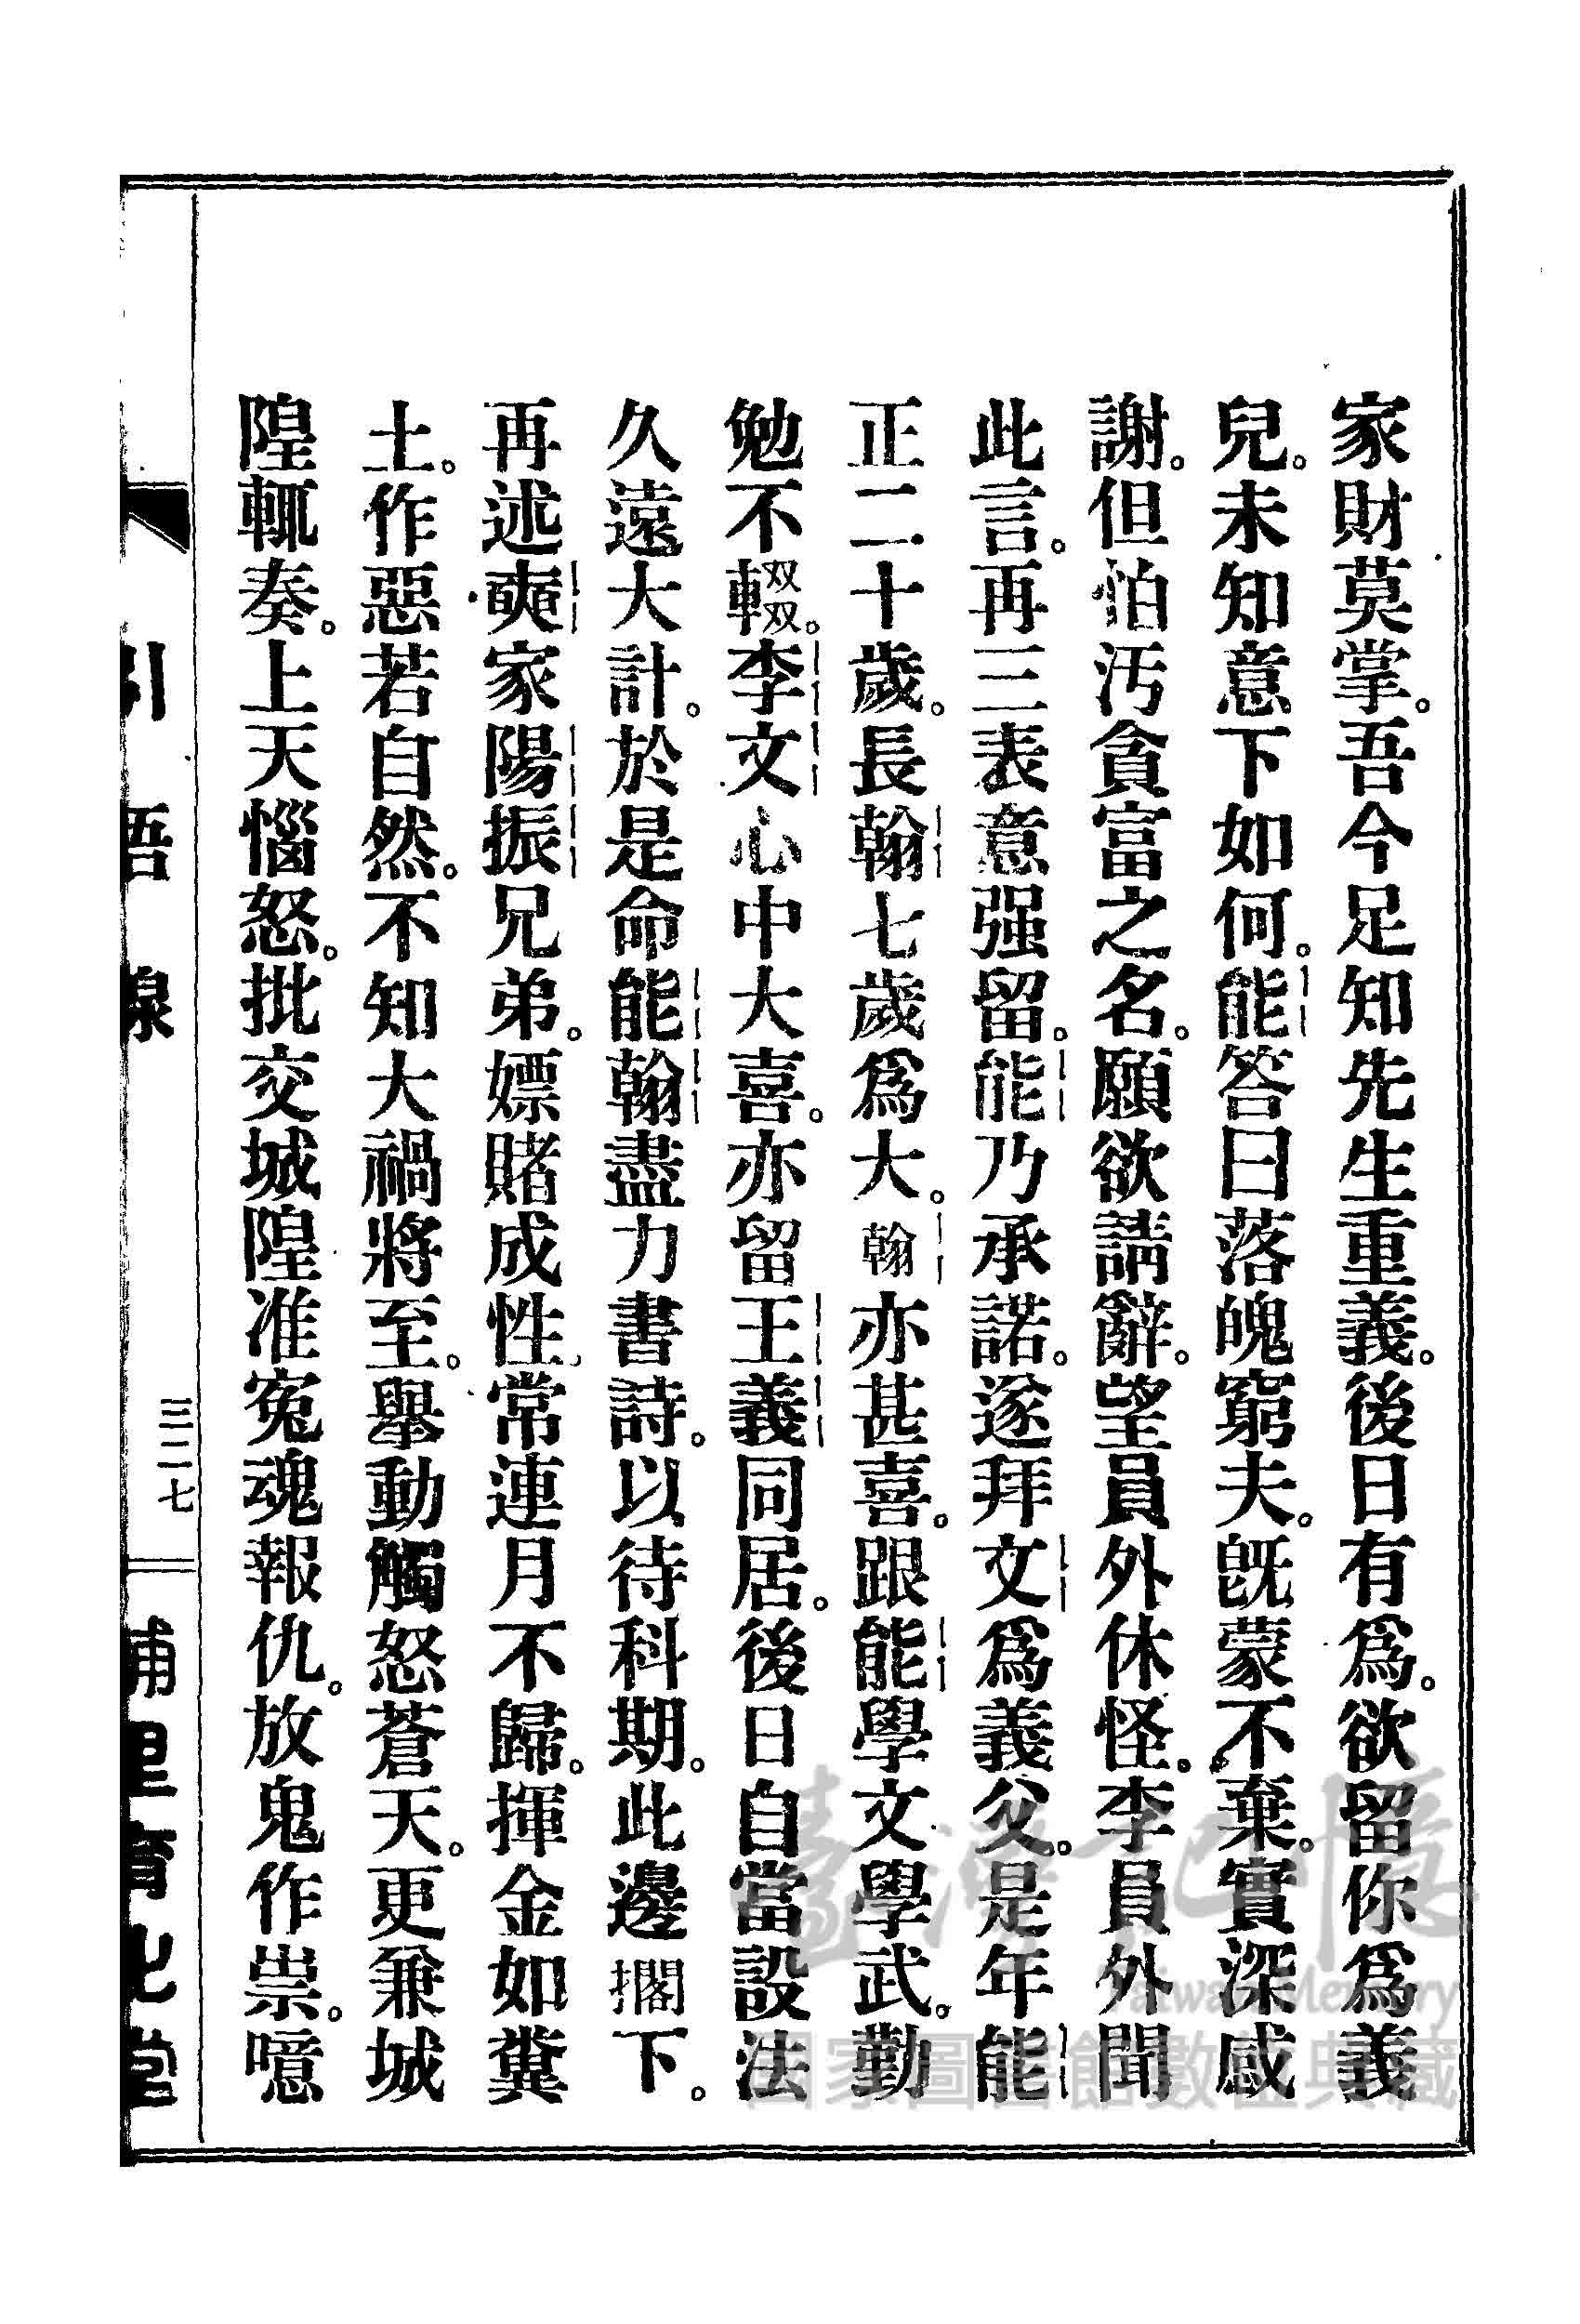 家財莫掌。吾今足知先生重義。後日有爲。欲留你爲義
兒。未知意下如何。能答曰落魄窮夫。既蒙不棄。實深感
謝。但怕汚貪富之名。願欲請辭。望員外休怪。李員外聞
此言。再三表意强留。能乃承諾。遂拜文爲義父。是年能
正二十歲。長翰七歲爲大。翰亦甚喜。跟能學文學武。勤
勉不輟。李文心中大喜。亦留王義同居。後日自當設法
久遠大計。於是命能翰盡力書詩。以待科期。此邊擱下。
再述奭家陽振兄弟。嫖賭成性。常連月不歸。揮金如糞
土。作惡若自然。不知大禍將至。舉動觸怒蒼天。更兼城
隍輒奏。上天惱怒。批交城隍准寃魂報仇。放鬼作祟。噫
引悟線
三二七
埔里育化堂
臺灣記憶
Taiwan Memory
國家圖書館數位典藏